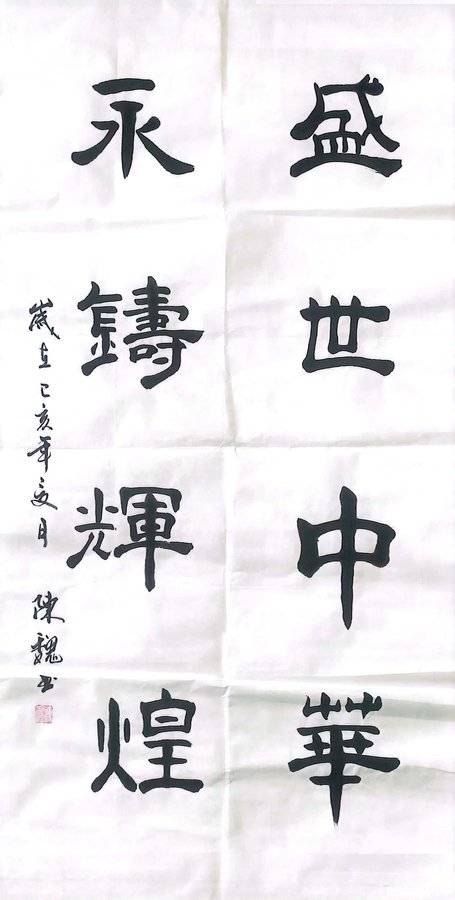 盛世中華
永鑄輝煌
歲在己亥年夏月 陳魏书